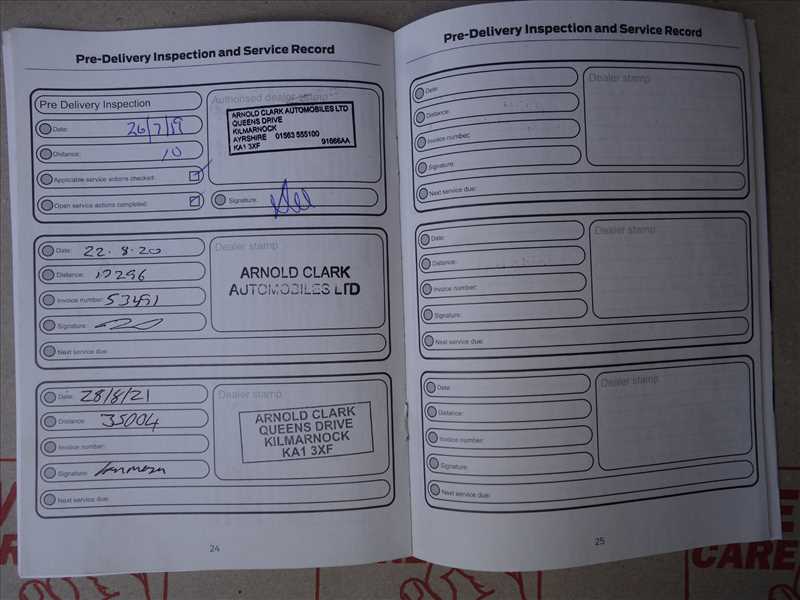 Pre-Delivery Inspection and Service Record
Pre Delivery Inspection
Date: 26/7/19
Distance: 10
Applicable service actions checked:
Open service actions completed:
Authorised dealer stamp
ARNOLD CLARK AUTOMOBILES LTD
QUEENS DRIVE
KILMARNOCK
AYRSHIRE 01563 555100
KA1 3XF 91666AA
Signature:
Date: 22.8.20
Distance: 17296
Invoice number: 53491
Signature:
Next service due:
Dealer stamp
ARNOLD CLARK
AUTOMOBILES LTD
Date: 28/8/21
Distance: 35004
Invoice number:
Signature:
Next service due:
Dealer stamp
ARNOLD CLARK
QUEENS DRIVE
KILMARNOCK
KA1 3XF
24
Pre-Delivery Inspection and Service Record
Date:
Distance:
Invoice number:
Signature:
Next service due:
Dealer stamp
Date:
Distance:
Invoice number:
Signature:
Next service due:
Dealer stamp
Date:
Distance:
Invoice number:
Signature:
Next service due:
Dealer stamp
25
CARE